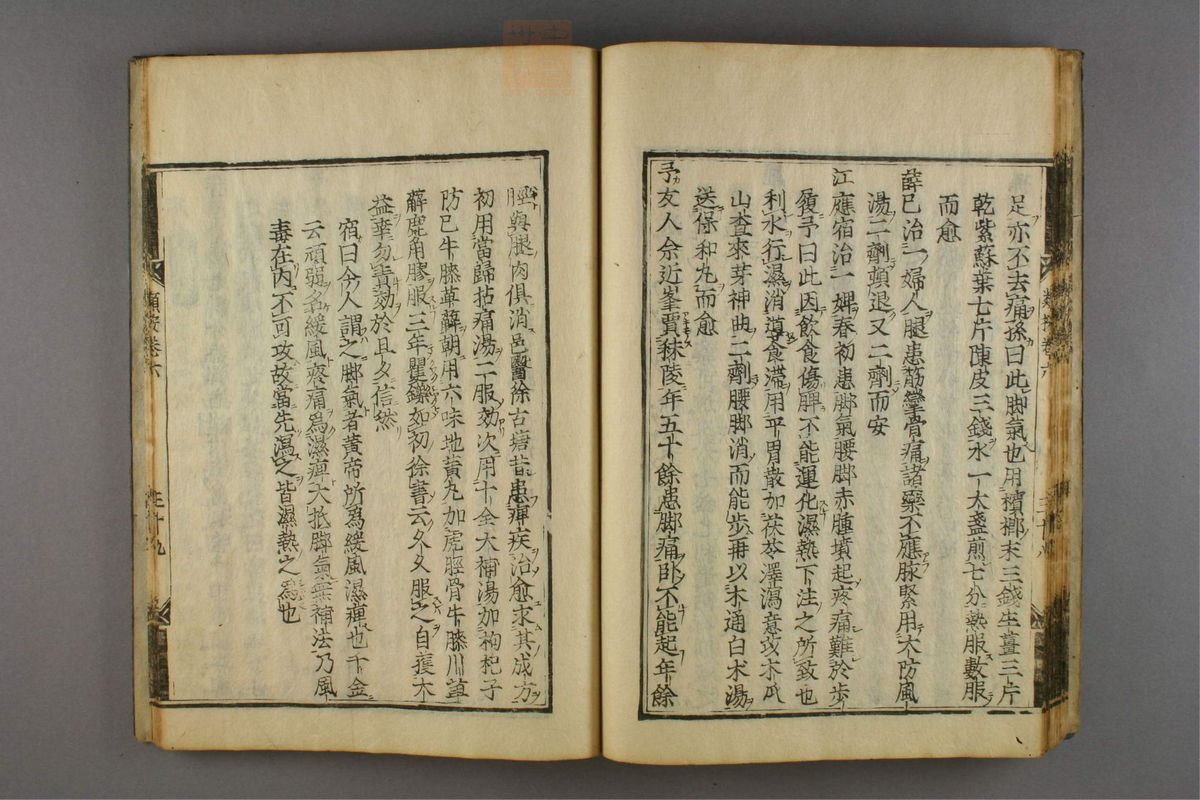 足亦不去痛孫曰此脚氣也用檳榔末三錢生薑三片
乾紫蘇葉七片陳皮三錢水一大盞煎七分熱服數服
而愈
薛已治一婦人腿患筋攣骨痛諸藥不應脉緊用大防風
湯二劑頓退又二劑而安
江應宿治一婢春初患脚氣腰脚赤腫墳起疼痛難於步
履予曰此因飲食傷脾不能運化濕熱下注之所致也
利水行濕消導食滯用平胃散加茯苓澤瀉意苡木瓜
山查麥芽神曲二劑腰脚消而能步再以木通白术湯
送保和丸而愈
予友人余近峯賈秣陵年五十餘患脚痛卧不能起年餘
脛與腿肉俱消邑醫徐古塘昔患痺疾治愈求其成方
初用當歸拈痛湯二服効次用十全大補湯加枸杞子
防已牛膝萆薢朝用六味地黄丸加虎脛骨牛膝川萆
薢鹿角膠服三年矍鑠如初徐書云久久服之自獲大
益幸勿責効於旦夕信然
宿曰今人謂之脚氣者黄帝所爲緩風濕痺也千金
云頑弱名緩風疼痛爲濕痺大抵脚氣無補法乃風
毒在内不可攻故當先瀉之皆濕熱之爲也
類按卷六
三十九